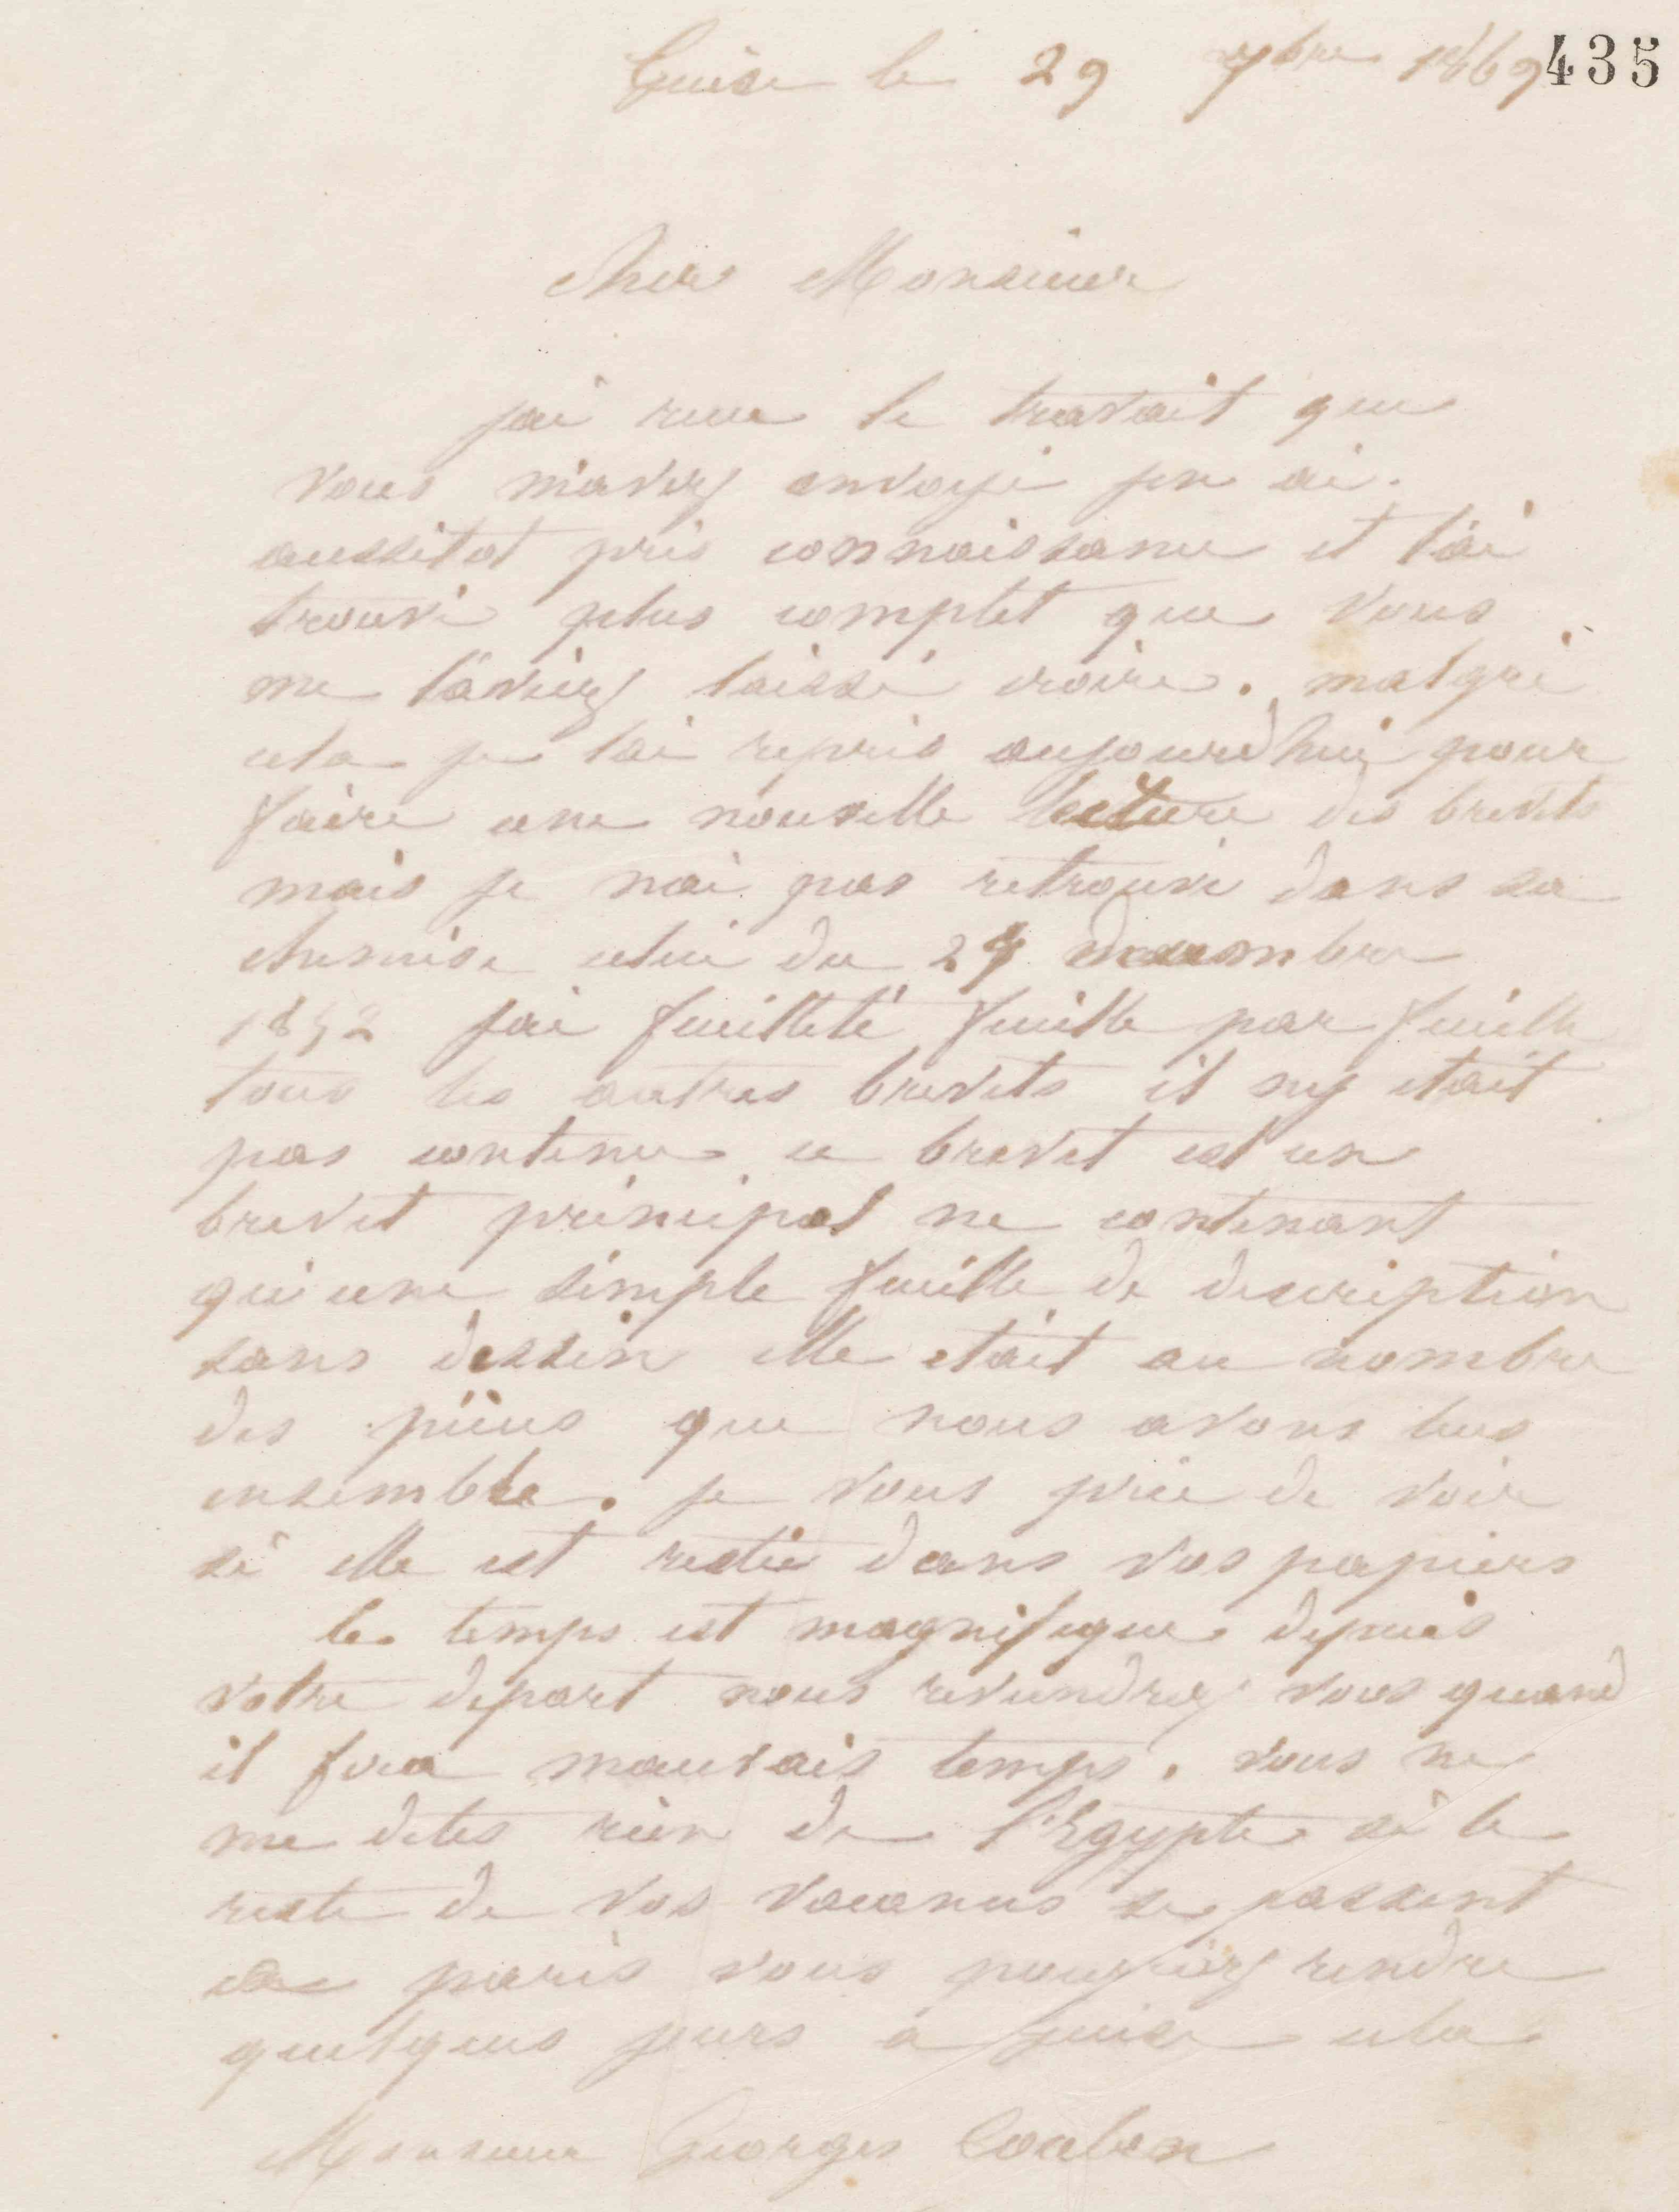 Guise le 29 7bre 1869 435
Cher Monsieur
jai recu le travail que
vous m'avez envoyé jen ai
aussitot pris connaissance et l'ai
trouvé plus complet que vous
me l'aviez laissé croire. malgré
cela je lai repris aujourd'hui pour
faire une nouvelle lecture des brevets
mais je nai pas retrouvé dans sa
chemise celui du 24 decembre
1852 jai feuilleté feuille par feuille
tous les autres brevets il ny etait
pas contenu ce brevet est un
brevet principal ne contenant
qu'une simple feuille de description
sans dessin elle etait au nombre
des pièces que nous avons lues
ensemble. je vous prie de voir
si elle est restée dans vos papiers
le temps est magnifique depuis
votre depart nous reviendrez vous quand
il fera mauvais temps. vous ne
me dites rien de l'Egypte si le
reste de vos vacances se passent
a paris vous pourriez rendre
quelques jours à guise cela
Monsieur Georges Coulon